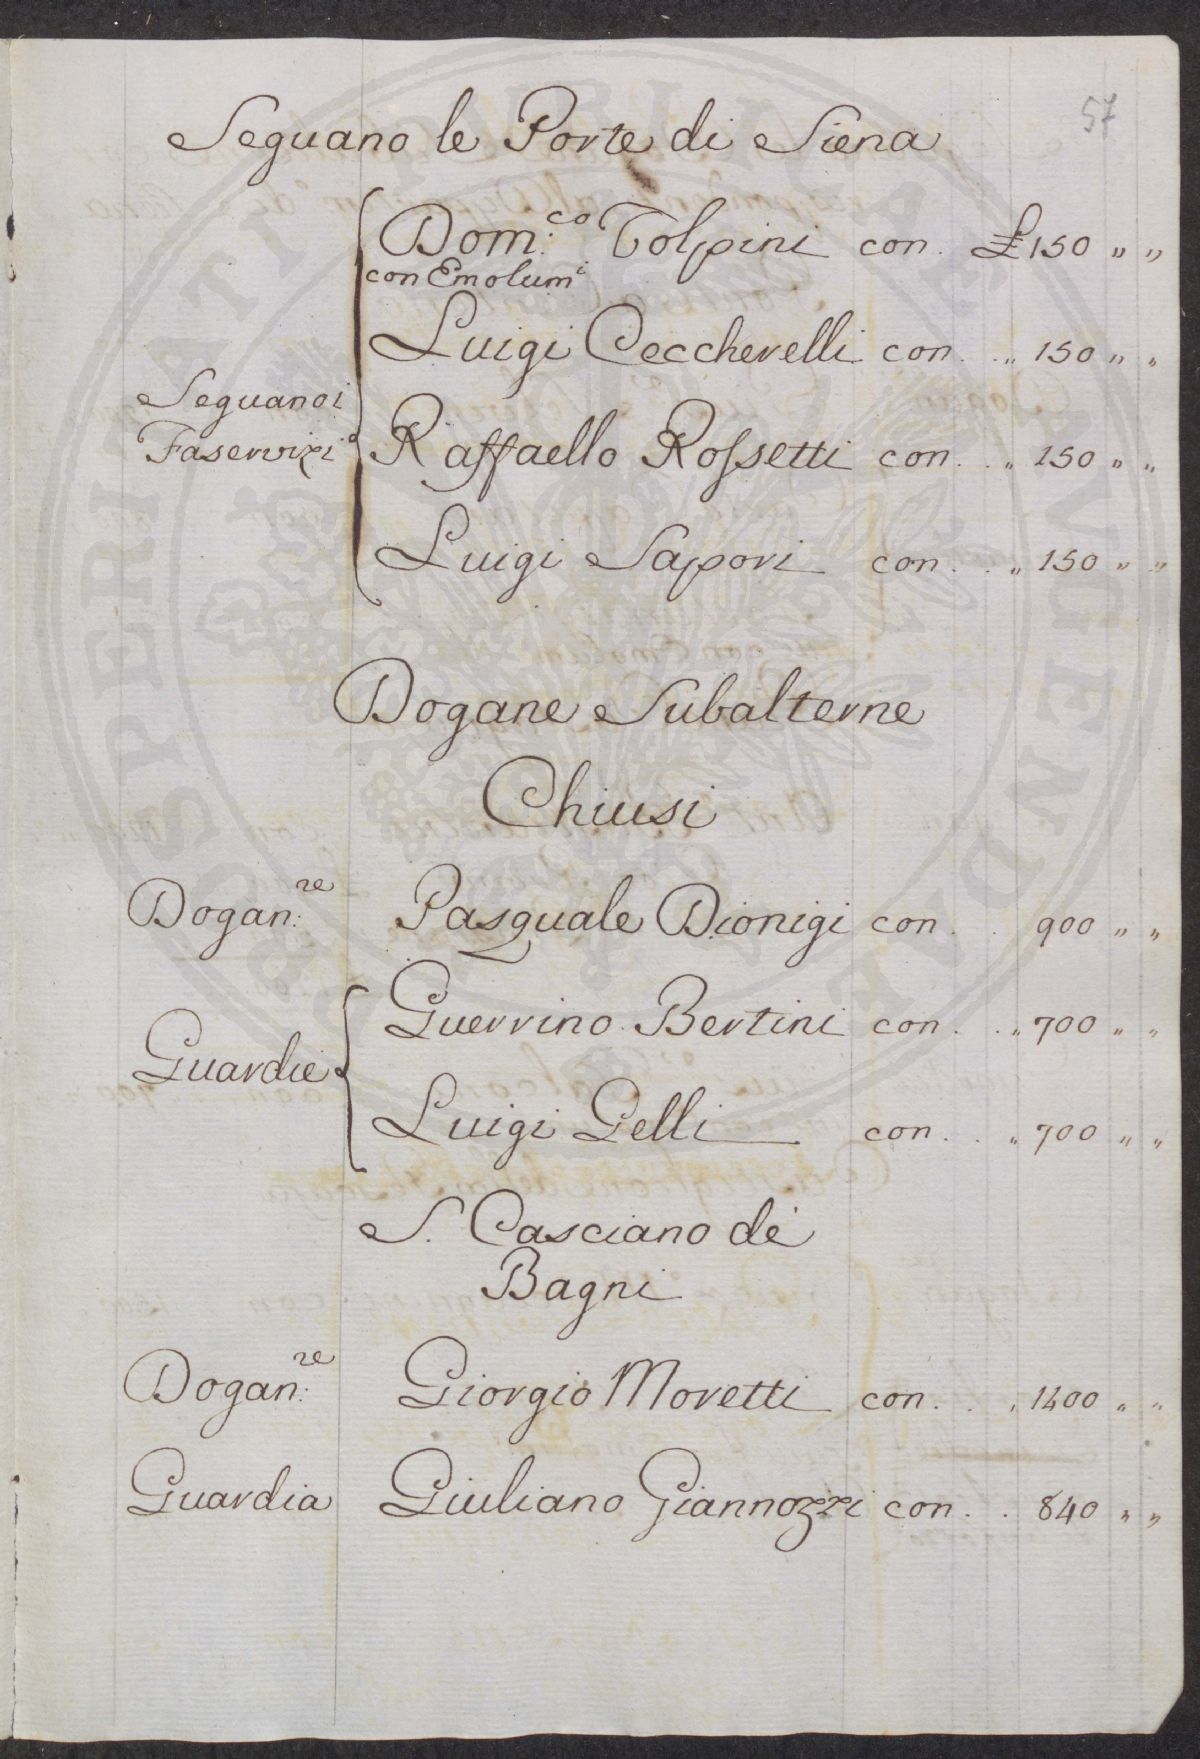 57
Seguano le Porte di Siena
Dom:co Tolpini con. £ 150 " "
con Emolumi
Luigi Ceccherelli con . . " 150 " "
Seguano i
Faservizi
Raffaello Rossetti con . . " 150 " "
Luigi Sapori con . . " 150 " "
Dogane Subalterne
Chiusi
Dogan:re Pasquale Dionigi con . . 900 " "
Guardie
Guerrino Bertini con . . " 700 " "
Luigi Gelli con . . " 700 " "
S. Casciano de'
Bagni
Dogan:re Giorgio Moretti con . . " 1400 " "
Guardia Giuliano Giannozzi con . . 840 " "